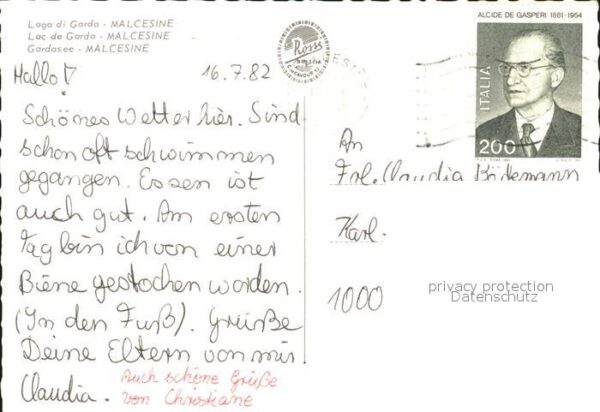 Lago di Garda - MALCESINE
Lac de Garda - MALCESINE
Gardasee - MALCESINE
ALCIDE DE GASPERI 1881-1954
ITALIA
200
Hallo!
16.7.82
Schönes Wetter hier. Sind
schon oft schwimmen
gegangen. Essen ist
auch gut. Am ersten
Tag bin ich von einer
Biene gestochen worden.
(In den Fuß). Grüße
Deine Eltern von mir
Claudia.
Auch schöne Grüße
von Christiane
An
Frl. Claudia Bödemann
Karl.
1000
privacy protection
Datenschutz